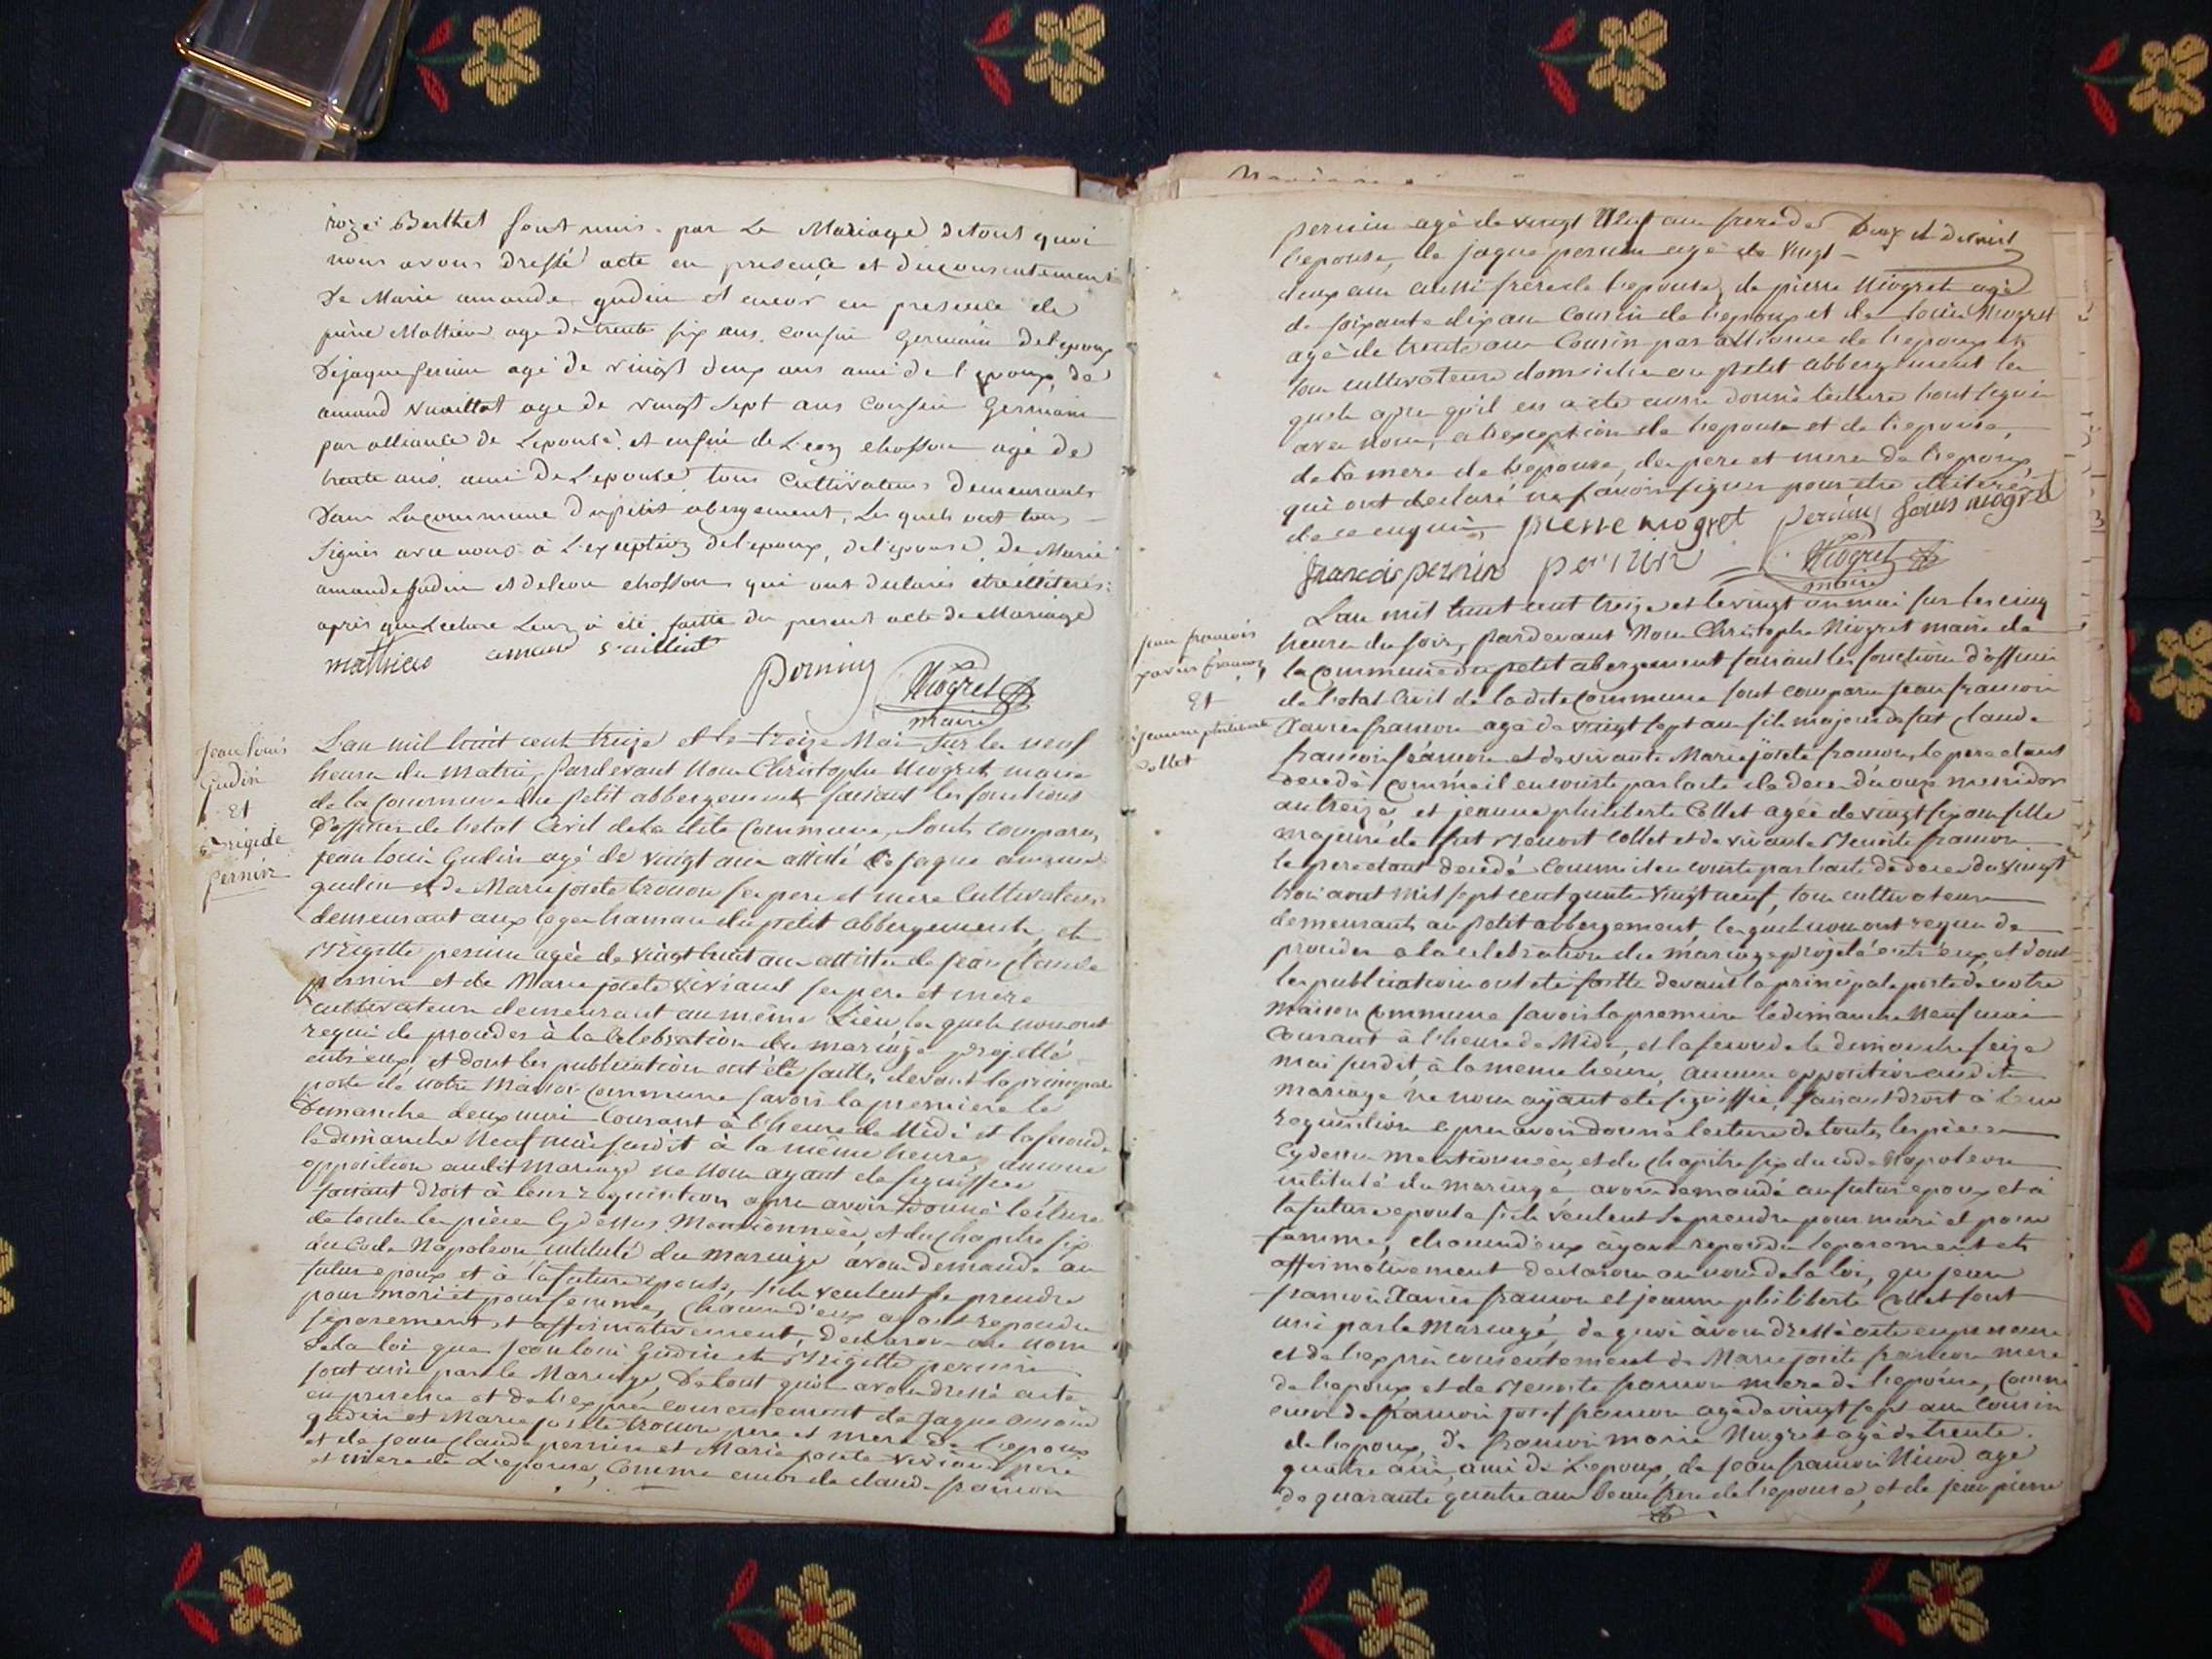 roze Berthet sont unis par Le Mariage detout quoi
nous avons Dressé acte en présence et duconsentement
De Marie amande gudin et encor en presence de
piere Mathieu age de trente six ans, cousin Germain delepoux
Dejaque pernin agé de vingt deux ans ami de l'epoux, de
amand vuaillat age de vingt sept ans cousin Germain
par alliance de Lepouse et enfin de Leon chosson agé de
trente ans, ami de L'epouse tous Cultivateurs Demeurants
Dans Lacommune dupetit abergement, Les quels ont tous
signés avec nous à L'exception del'epoux, del'epouse, de Marie
amande gudin et deleon chosson qui ont declarés etreilliterés:
après que Lecture Leur à été faitte du present acte de Mariage
mathieu amand vaillat
Pernin Niogret
maire
Jean louis
Gudin
Et
Brigide
pernin
L'an mil huit cent treize et le treize Mai sur les neuf
heures du matin, pardevant Nous Christophe Niogret maire
de la commune du petit abbergement faisant les fonctions
d'officier de l'etat Civil de la dite Commune, sont comparus
jean louis Gudin agé de vingt ans assisté de jaque
gudin et de Marie josete trouon ses pere et mere Cultivateurs
demeurant aux loges hamau du petit abbergement, et
Brigitte pernin agée de vingt huit ans assistée de jean claude
pernin et de Marie josete viviand ses pere et mere
cultivateurs demeurant au même Lieu, les quels nous ont
requi de proceder à la celebration du mariage projetté
entr'eux, et dont les publications ont été faittes devant la principale
porte de notre Maison commune savoir la premiere le
Dimanche deux mai Courant à l'heure de Midi et la seconde
le dimanche Neuf mai susdit à la même heure, aucune
opposition audit Mariage ne nous ayant ete signiffiée
faisant droit à leur requisition, apres avoir donné lecture
de toutes les pieces cydessus Mentionnées, et du chapitre six
du Code Napoleon intitulé du mariage avons demandé au
futur epoux et à la future epouse, s'ils veulent se prendre
pour mari et pour femme, chacun d'eux ayant repondu
separement et affirmativement, declarons au nom
de la loi que jean louis Gudin et Brigitte pernin
sont unis par le Mariage, De tout quoi avons dressé acte
en presence et de l'exprès consentement de jaque
gudin et Marie josete trouon pere et mere de l'epoux
et de jean claude pernin et Marie josete viviand pere
et mere de L'epouse, Comme encor de claude francois
pernin agé de vingt Neuf ans frere de Deux et dernier
l'epouse, de jaque pernin agé de vingt
deux ans aussi frere de l'epouse, de pierre Niogret agé
de soixante dix ans Cousin de l'epoux et de louis Niogret
agé de trente ans Cousin par alliance de l'epoux
tous cultivateurs domicilies au petit abbergement les
quels apres qu'il en a ete aussi donné lecture l'ont signé
avec nous, a l'exception de l'epoux et de l'epouse,
de la mere de l'epouse, des pere et mere de l'epoux,
qui ont declaré ne savoir signer pour etre illiterés
de ce enquis pierre niogret pernin louis niogret
francois pernin pernin Niogret
maire
jean francois
xavier francon
Et
jeanne philiberte
Collet
L'an mil huit cent treize et le vingt un mai sur les cinq
heures du soir, pardevant Nous Christophe Niogret maire de
la commune du petit abergement faisant les fonctions d'officier
de l'etat Civil de la dite commune sont comparu jean francois
Xavier francon agé de vingt sept ans fils majeur de fut claude
francois francon et de vivante Marie josete francon, le pere etant
decedé comme il en conste par l'acte de deces du onze messidor
an treize, et jeanne philiberte Collet agée de vingt six ans fille
majeure de fut Benoit Collet et de vivante Benoite francon
le pere etant decedé comme il en conste par l'acte de deces du vingt
trois aout mil sept cent quatre vingt neuf, tous cultivateurs
demeurants au petit abbergement, les quels nous ont requis de
proceder a la celebration du mariage projeté entr'eux, et dont
les publications ont eté faitte devant la principale porte de notre
maison commune savoir la premiere le dimanche Neuf mai
Courant à l'heure de Midi, et la seconde le dimanche seize
mai susdit, à la meme heure, aucune opposition audit
mariage ne nous ayant ete signiffiée, faisant droit à leur
requisition apres avoir donné lecture de toutes les pieces
Cydessus mentionnées, et du chapitre six du code Napoleon
intitulé du mariage, avons demandé au futur epoux et à
la future epouse s'ils veulent se prendre pour mari et pour
femme, chacun d'eux ayant repondu separement et
affirmativement declarons au nom de la loi, que jean
francois Xavier francon et jeanne philiberte Collet sont
unis par le Mariage, de quoi avons dressé acte en presence
et de l'exprès consentement de Marie josete francon mere
de l'epoux et de Benoite francon mere de l'epouse, Comme
encor de francois josef francon agé de vingt sept ans cousin
de l'epoux, de francois marie Niogret agé de trente
quatre ans, ami de l'epoux, de jean francois agé
de quarante quatre ans beau frere de l'epouse, et de jean pierre